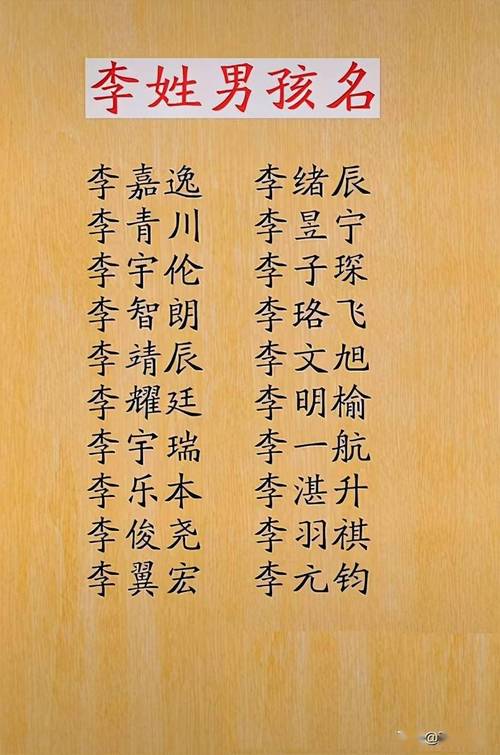 李姓男孩名
李嘉逸 李绪辰
李青川 李昱宁
李宇伦 李子琛
李智朗 李珞飞
李靖辰 李文旭
李耀廷 李明榆
李宇瑞 李一航
李乐本 李湛升
李俊尧 李羽祺
李翼宏 李亢钧
@